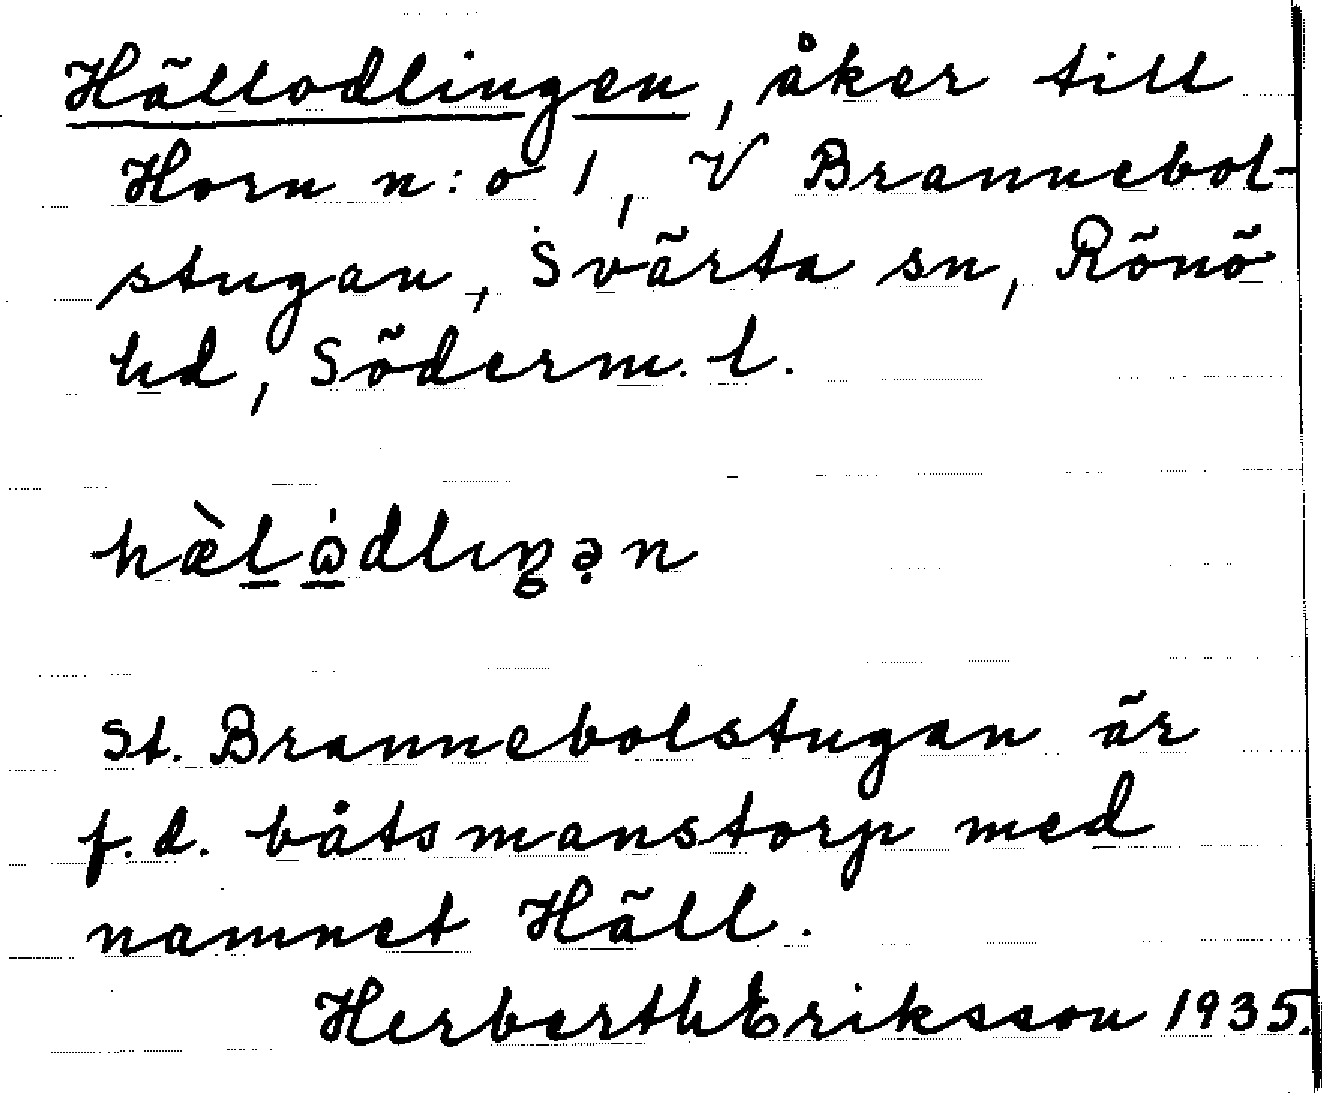 Hällodlingen, åker till
Horn n:o 1, V Brannebol-
stugan, Svärta sn, Rönö
hd, Söderm. l.
hæ̀l̠ω̠̇dlıŋə̣n
St. Brannebolstugan är
f.d. båtsmanstorp med
namnet Häll.
Herberth Eriksson 1935.